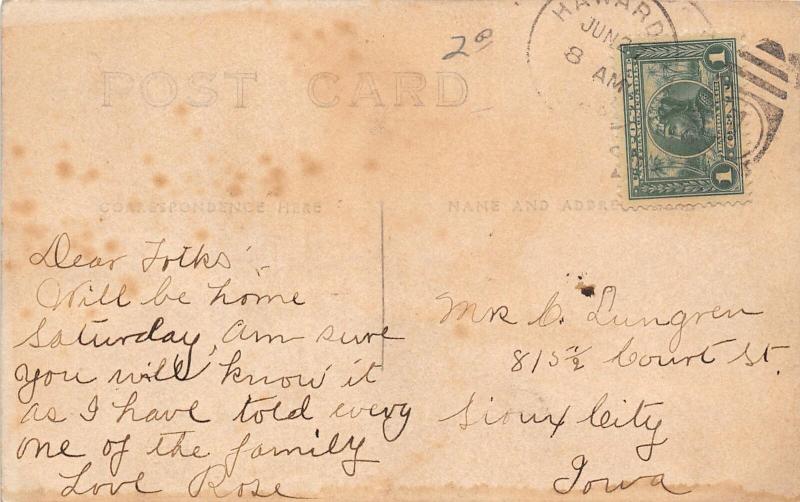 2⁰
HAWARD
JUN
8 AM
1 CENT 1
POST CARD
CORRESPONDENCE HERE
NAME AND ADDRE
Dear Folks
Will be home
Saturday, Am sure
you will know it
as I have told every
one of the family
Love Rose
Mr C. Lungren
815½ Court St.
Sioux City
Iowa